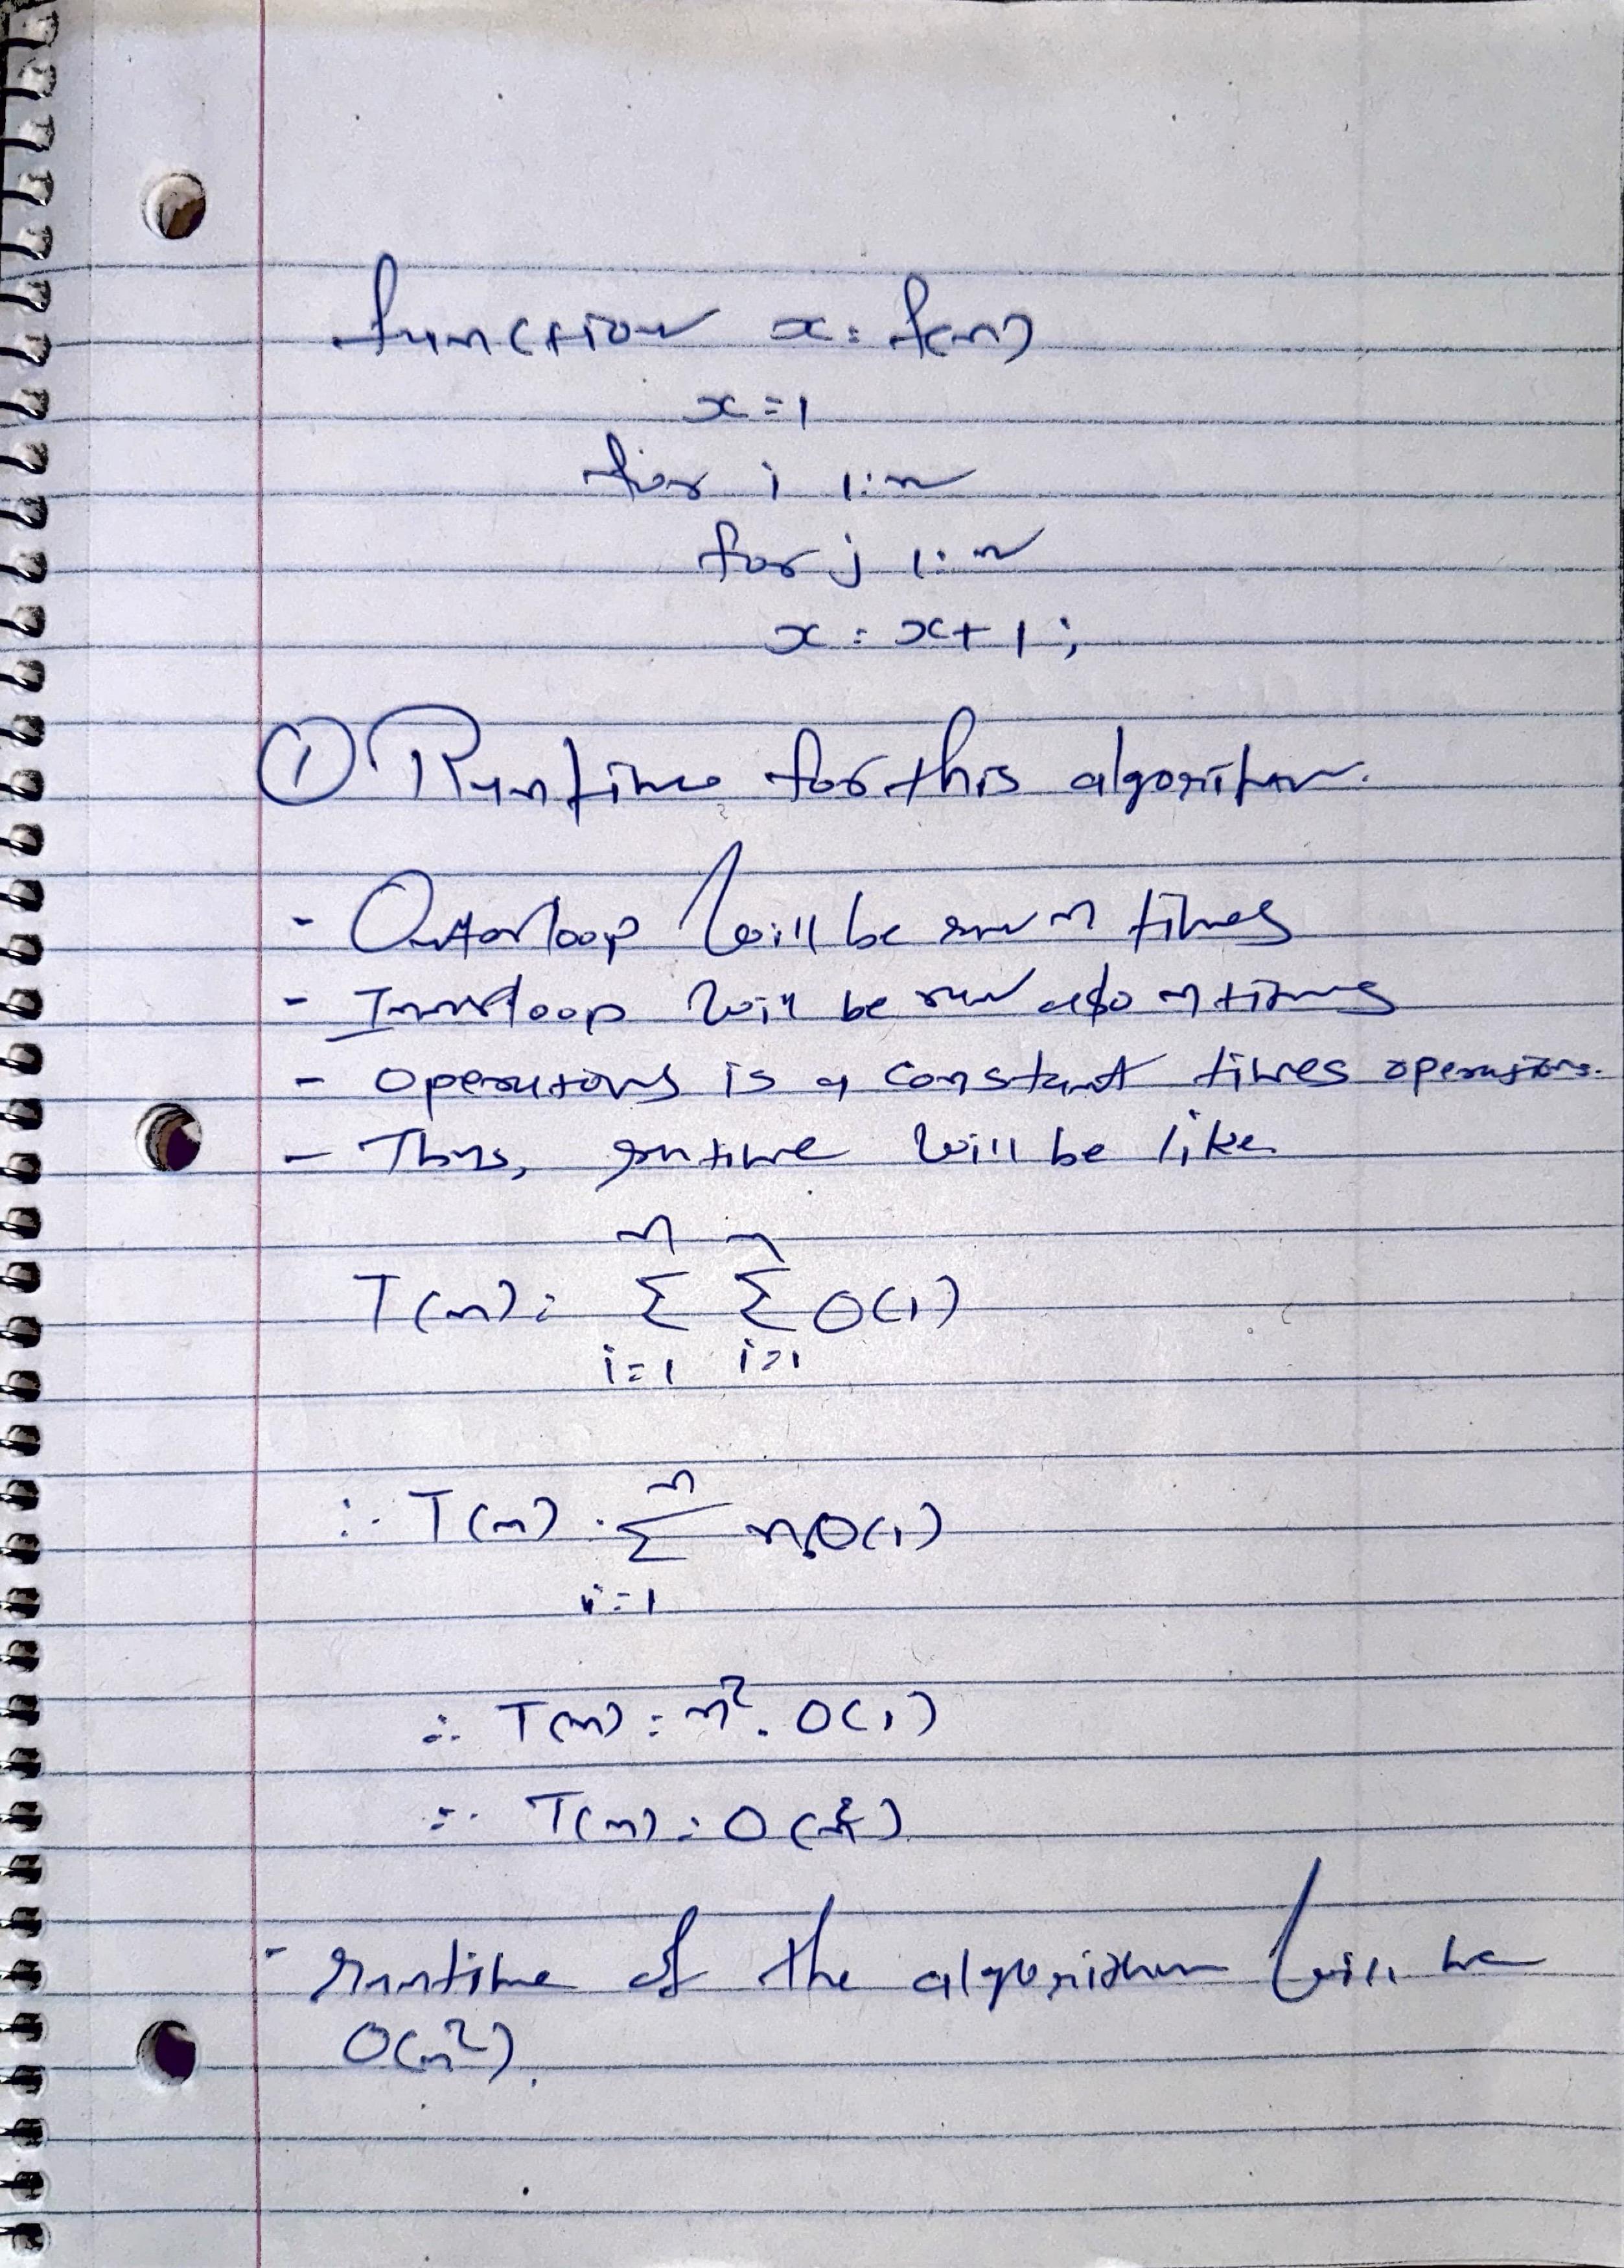 function x = f(n)
x = 1
for i 1:n
for j 1:n
x = x + 1;
① Runtime for this algorithm.
- Outerloop will be run n times
- Innerloop will be run also n times
- operations is a constant times operations.
- Thus, runtime will be like
n n
T(n) = Σ Σ O(1)
i=1 i=1
n
∴ T(n) = Σ n.O(1)
i=1
∴ T(n) = n². O(1)
∴ T(n) = O(n²)
- runtime of the algorithm will be
O(n²).